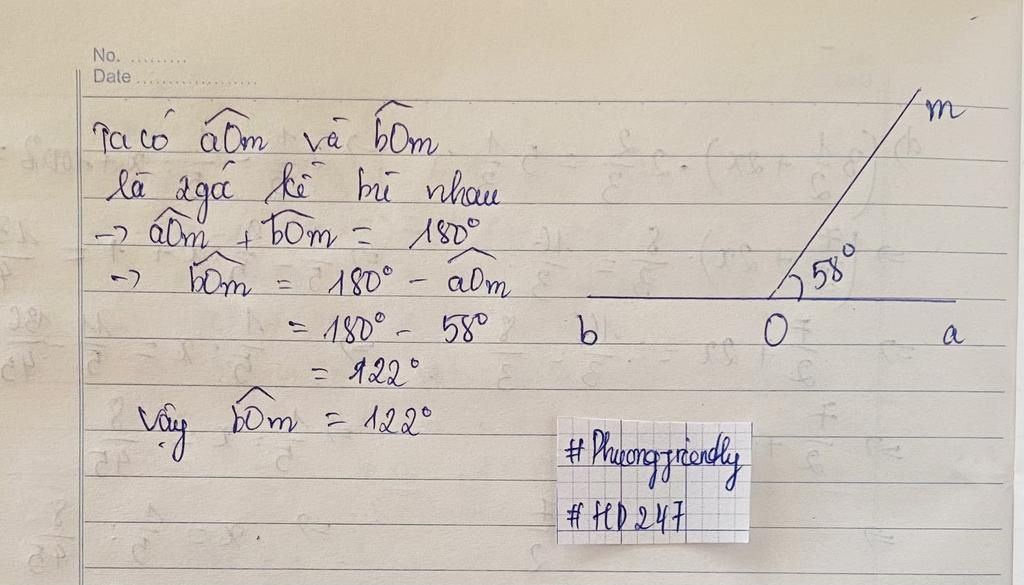 No. .........
Date ..................
Ta có aOm và bOm
là 2 gá kề bù nhau
→ aOm + bOm = 180°
→ bOm = 180° - aOm
= 180° - 58°
= 122°
Vậy bOm = 122°
m
58°
b O a
#Phuongfriendly
#HD247